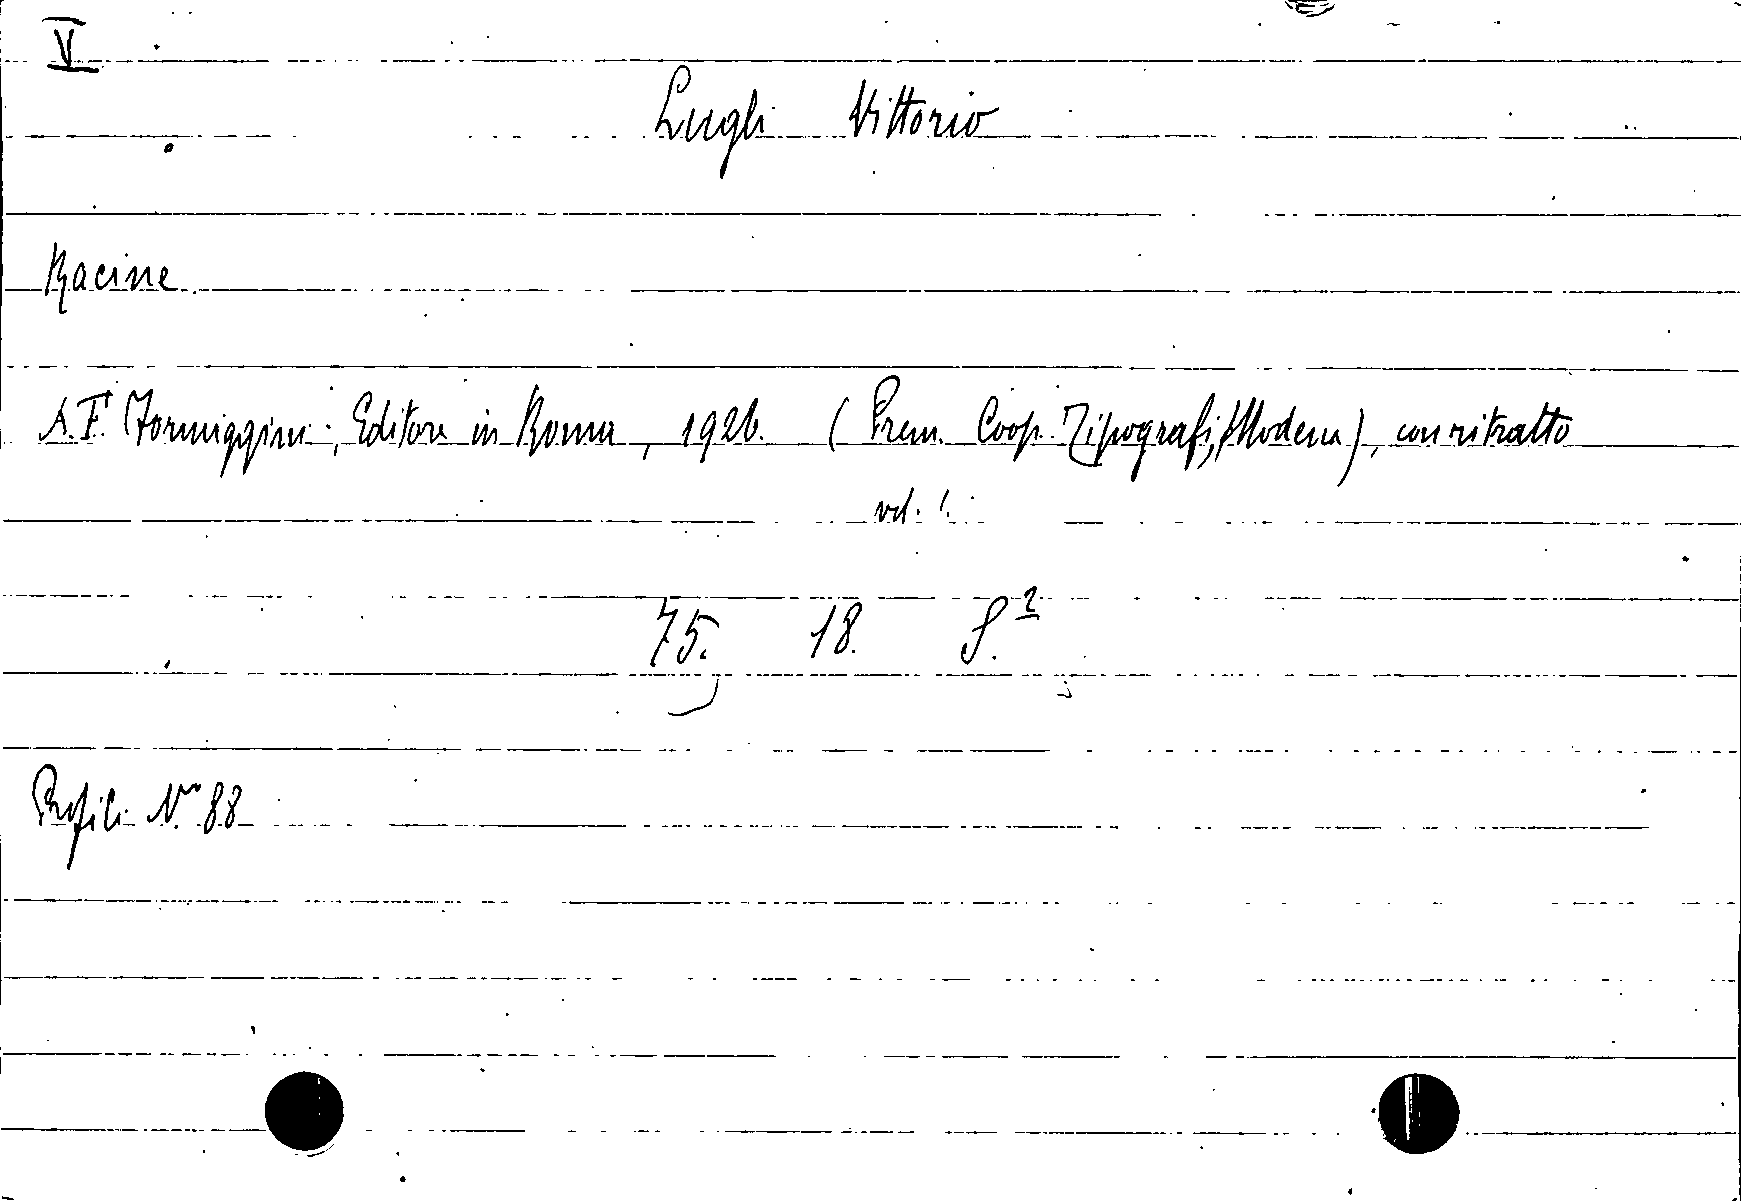 V
Lugli Vittorio
Racine
A. F. Formiggini, Editore in Roma, 1926. (Prem. Coop. Tipografi, Modena), con ritratto
vol. 1.
75. 18. S.2
Profili No 88